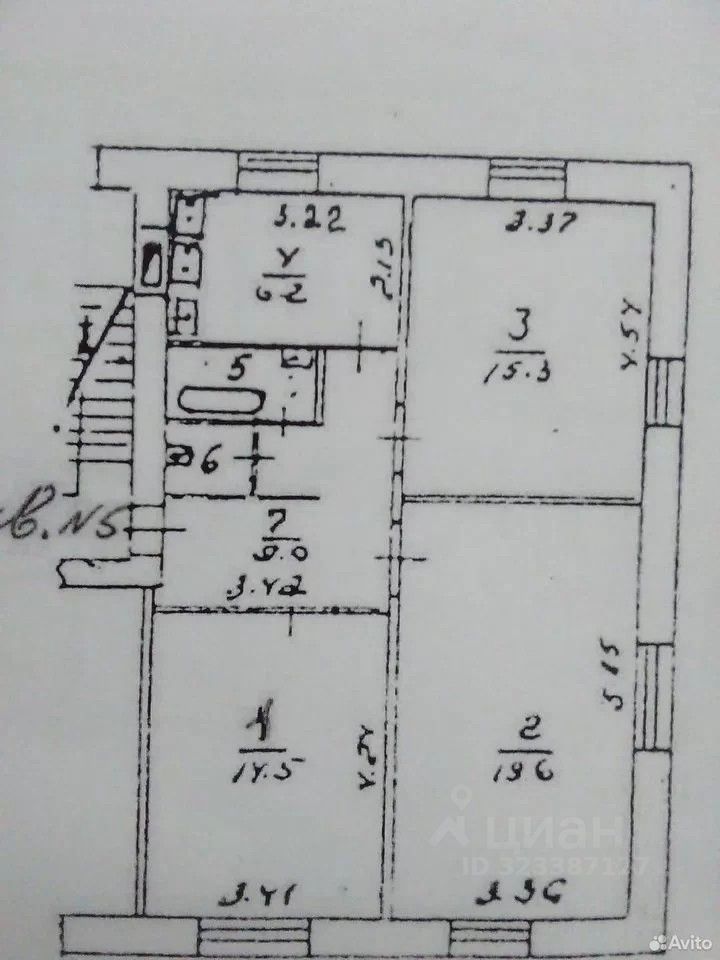 3.22
4
6.2
2.15
3.37
3
15.3
4.54
5
6
кв.№5
7
9.0
3.42
1
14.5
4.24
3.41
2
19.6
5.15
3.96
циан
ID 323387127
Avito